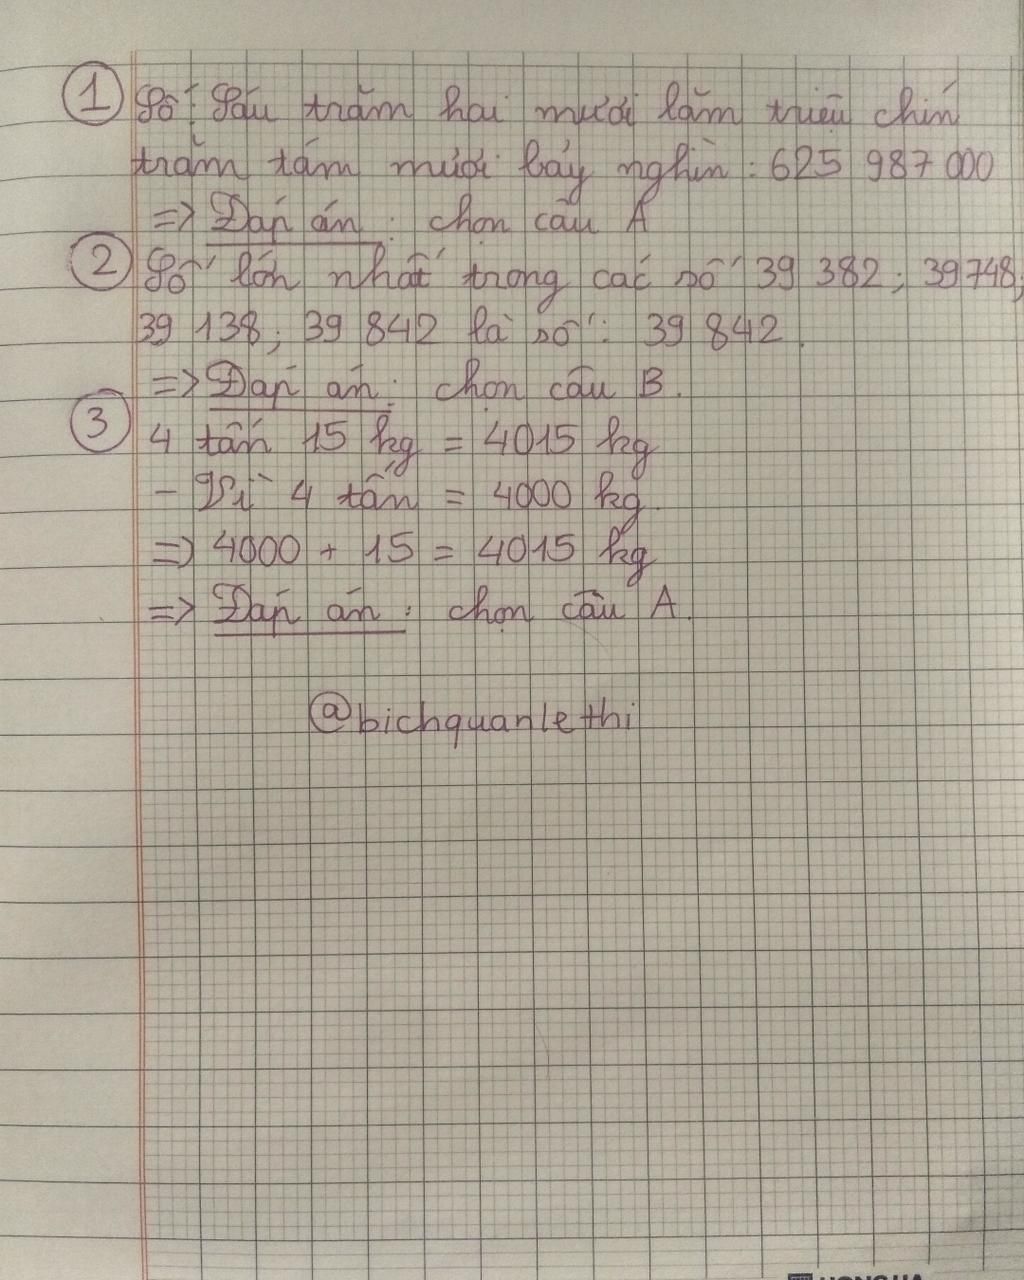 1 Số: Sáu trăm hai mươi lăm triệu chín
trăm tám mươi bảy nghìn: 625 987 000
=> Đáp án: chọn câu A
2 Số lớn nhất trong các số 39 382; 39 748;
39 138; 39 842 là số: 39 842.
=> Đáp án: chọn câu B.
3 4 tấn 15 kg = 4015 kg
- Vì 4 tấn = 4000 kg.
=> 4000 + 15 = 4015 kg
=> Đáp án: chọn câu A.
@bichquanlethi